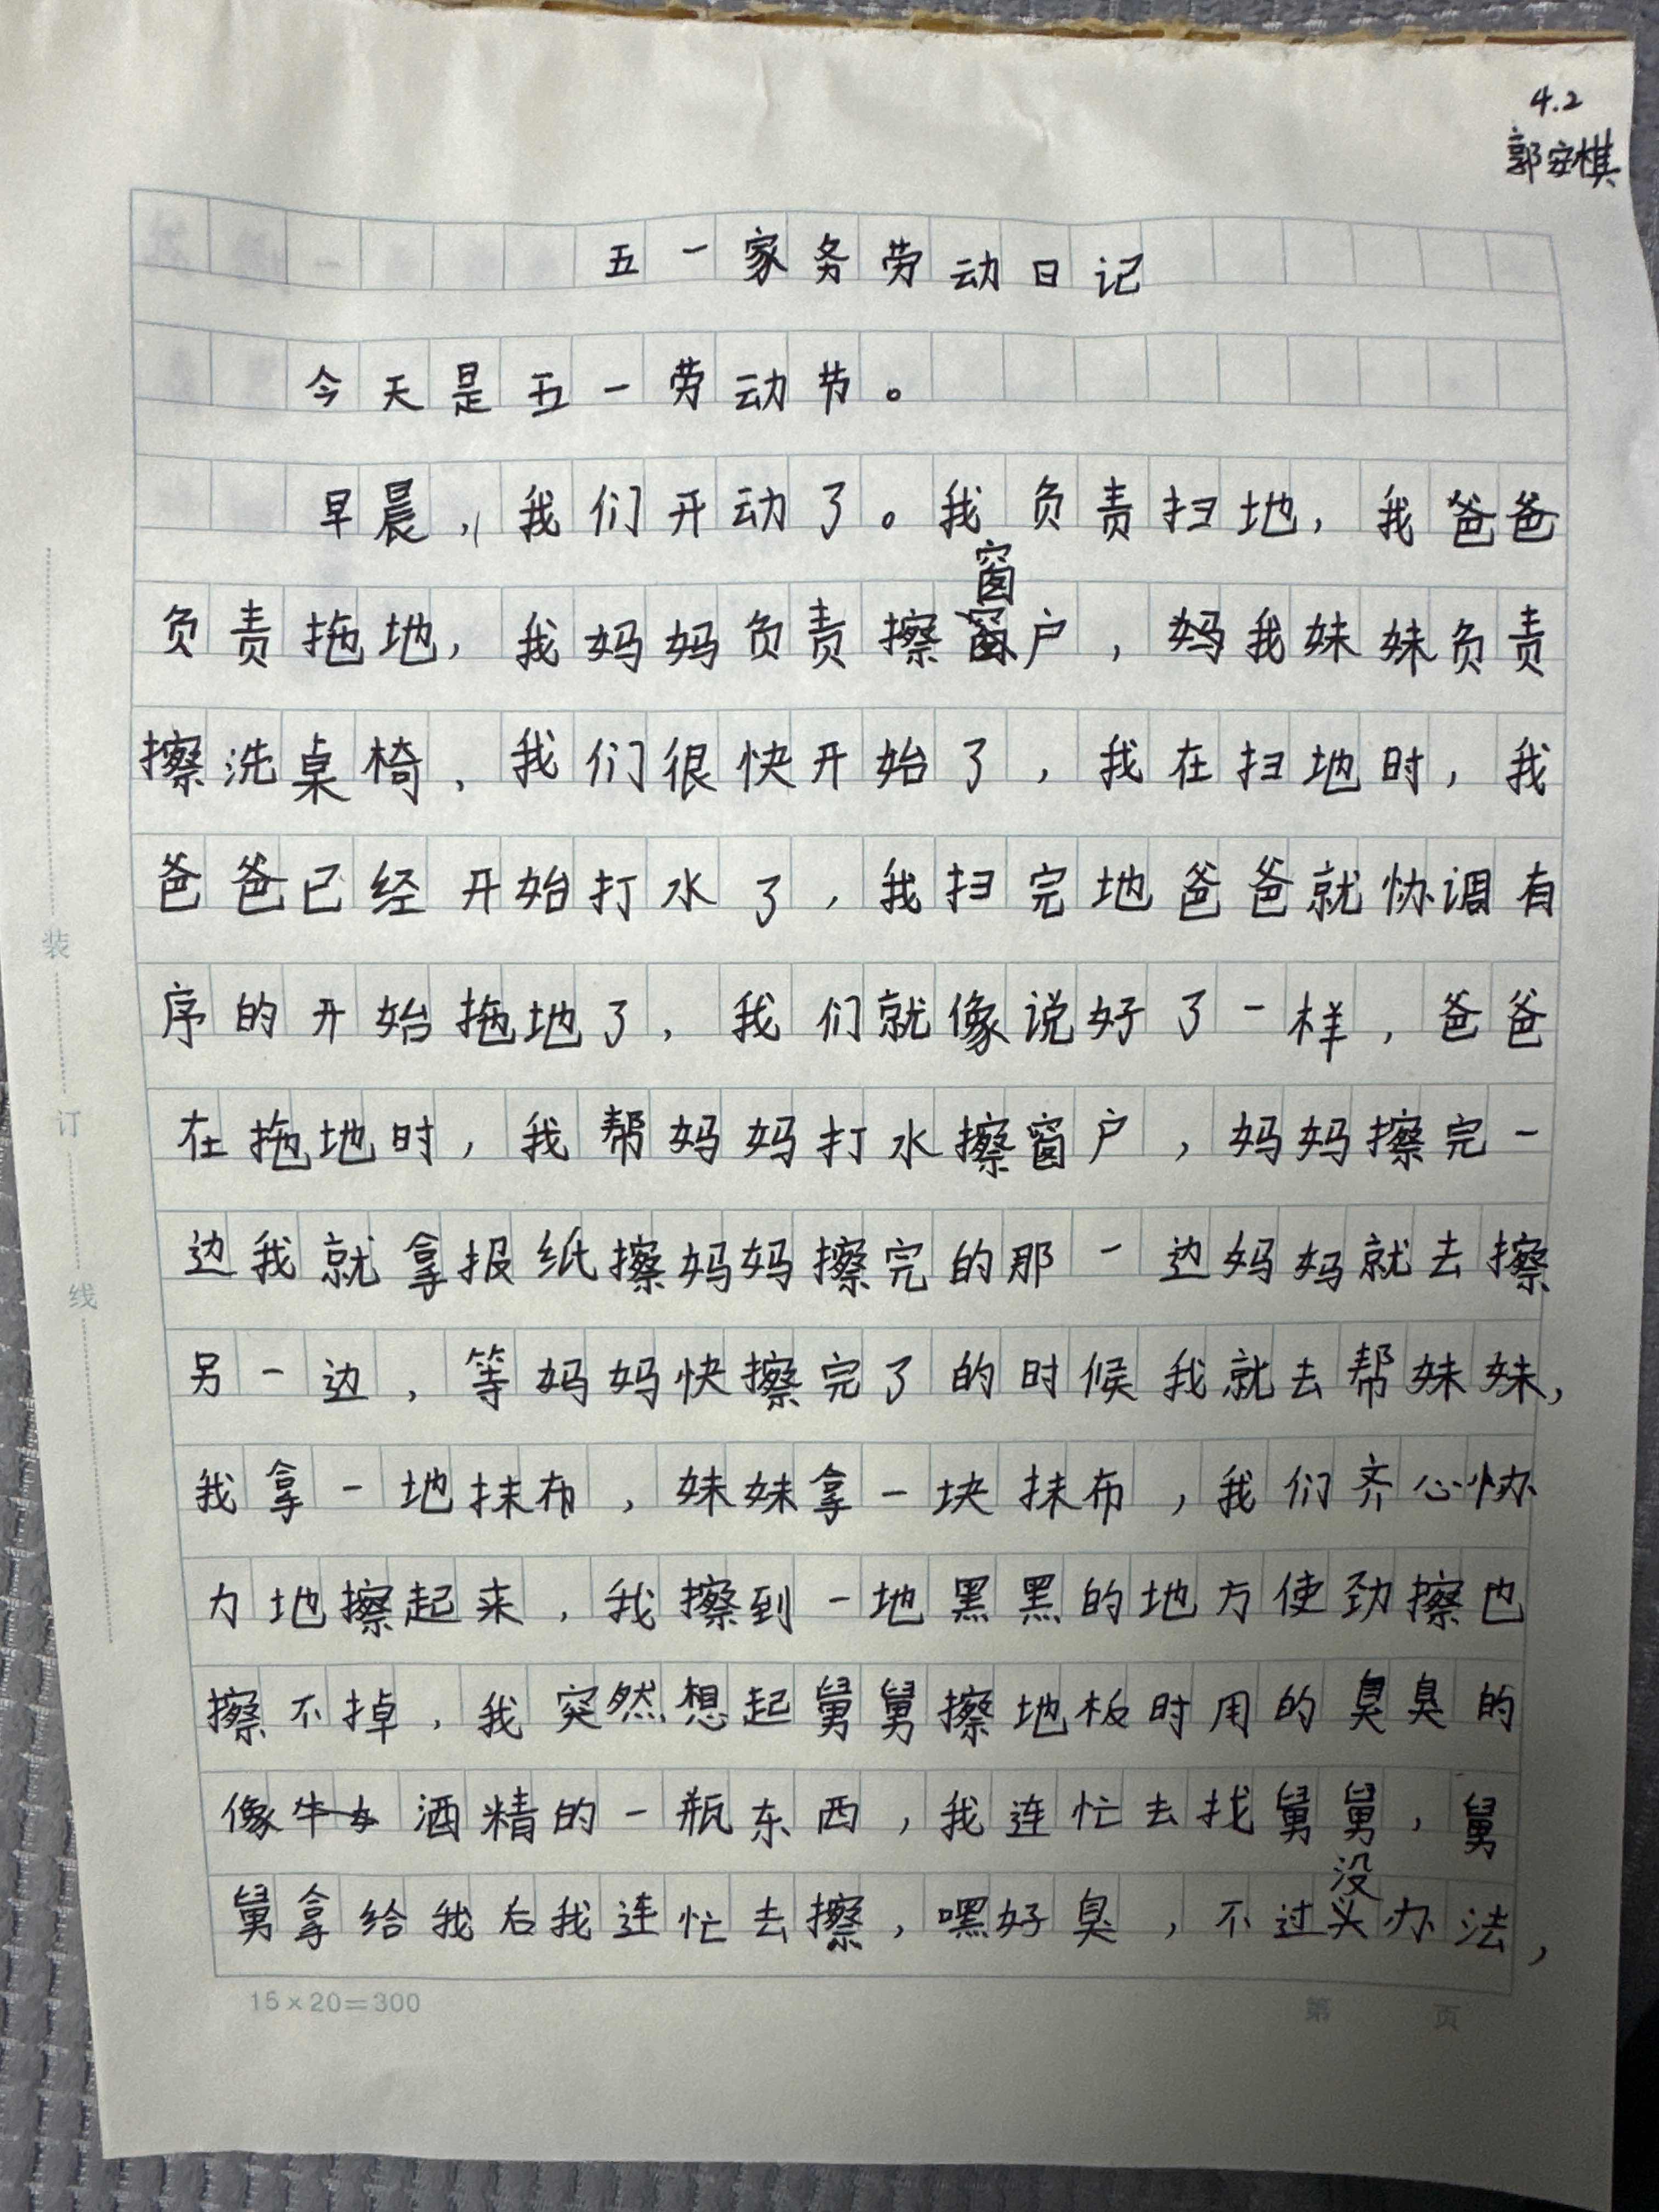 4.2
郭安棋
五一家务劳动日记
今天是五一劳动节。
早晨,我们开动了。我负责扫地,我爸爸
窗
负责拖地,我妈妈负责擦户,妈我妹妹负责
擦洗桌椅、我们很快开始了,我在扫地时,我
爸爸已经开始打水了,我扫完地爸爸就协调有
序的开始拖地了,我们就像说好了一样,爸爸
在拖地时,我帮妈妈打水擦窗户,妈妈擦完一
边我就拿报纸擦妈妈擦完的那一边妈妈就去擦
另一边,等妈妈快擦完了的时候我就去帮妹妹,
我拿一地抹布,妹妹拿一块抹布,我们齐心协
力地擦起来,我擦到一地黑黑的地方使劲擦也
擦不掉,我突然想起舅舅擦地板时用的臭臭的
像酒精的一瓶东西,我连忙去找舅舅,舅
没
舅拿给我后我连忙去擦,嘿好臭,不过头办法,
15×20=300
第 页
装
订
线